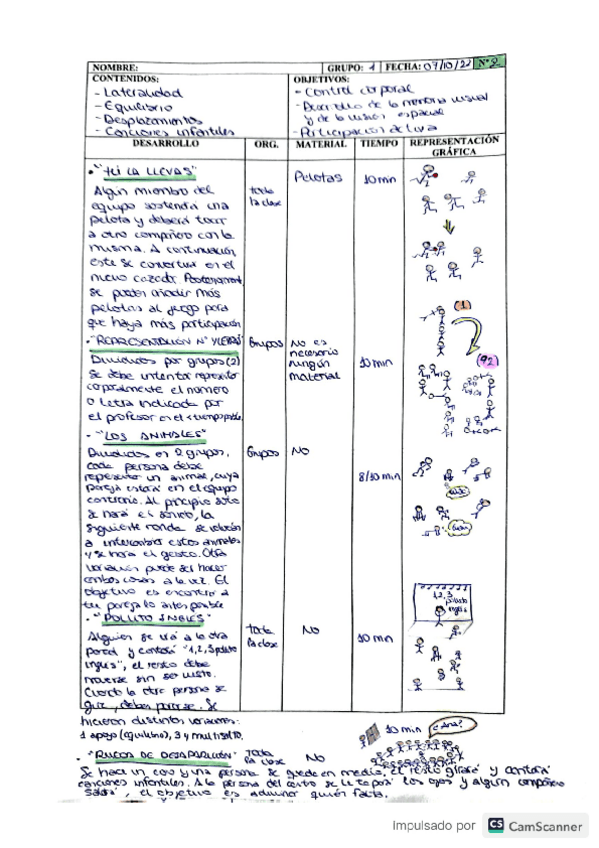 NOMBRE: GRUPO: 1 FECHA: 07/10/22 Nº2
CONTENIDOS:
- Lateralidad
- Equilibrio
- Desplazamientos
- Canciones infantiles
OBJETIVOS:
- Control corporal
- Desarrollo de la memoria visual
y de la visión espacial
- Participación activa
DESARROLLO ORG. MATERIAL TIEMPO REPRESENTACIÓN GRÁFICA
• "TU LA LLEVAS"
Algún miembro del
equipo sostendrá una
pelota y deberá tocar
a otro compañero con la
misma. A continuación
este se convertirá en el
nuevo cazador. Posteriorment
se pueden añadir más
pelotas al juego para
que haya más participación
toda
la clase
Pelotas
10 min
• "REPRESENTACIÓN Nº Y LETRAS"
Divididos por grupos (2)
se debe intentar representar
corporalmente el número
o letra indicada por
el profesor en el < tiempo posible.
Grupos
No es
necesario
ningún
material
10 min
1
92
- "LOS ANIMALES"
Divididos en 2 grupos,
cada persona debe
representar un animal, cuya
pareja estará en el equipo
contrario. Al principio solo
se hará el sonido, la
siguiente ronda se volverán
a intercambiar estos animales
y se hará el gesto. Otra
variación puede ser hacer
ambas cosas a la vez. El
objetivo es encontrar a
tu pareja lo antes posible
Grupos
NO
8/10 min
• "POLLITO INGLÉS"
Alguien se irá a la otra
pared y contará "1, 2, 3 pollito
inglés", el resto debe
moverse sin ser visto.
Cuando la otra persona se
gire, deben pararse. Se
hicieron distintas variaciones:
1 apoyo (equilibrio), 3 y multisalto.
Toda
la clase
NO
10 min
1, 2, 3
pollito
inglés
• "RUEDA DE DESAPARICIÓN" Toda
la clase No 10 min ¿Ana?
Se hace un coro y una persona se quede en medio. El resto girará y cantará
canciones infantiles. A la persona del centro se le tapará los ojos y algún compañero
saldrá, el objetivo es adivinar quién falta.
Impulsado por CS CamScanner